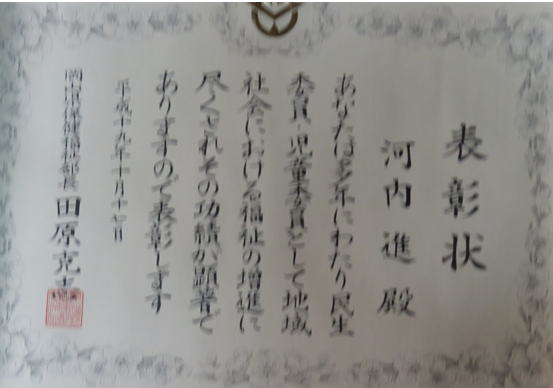 表彰状
河内進殿
あなたは多年にわたり民生
委員・児童委員として地域
社会における福祉の増進に
尽くされその功績が顕著で
ありますので表彰します
平成十九年十月十七日
岡山県保健福祉部長 田原克志